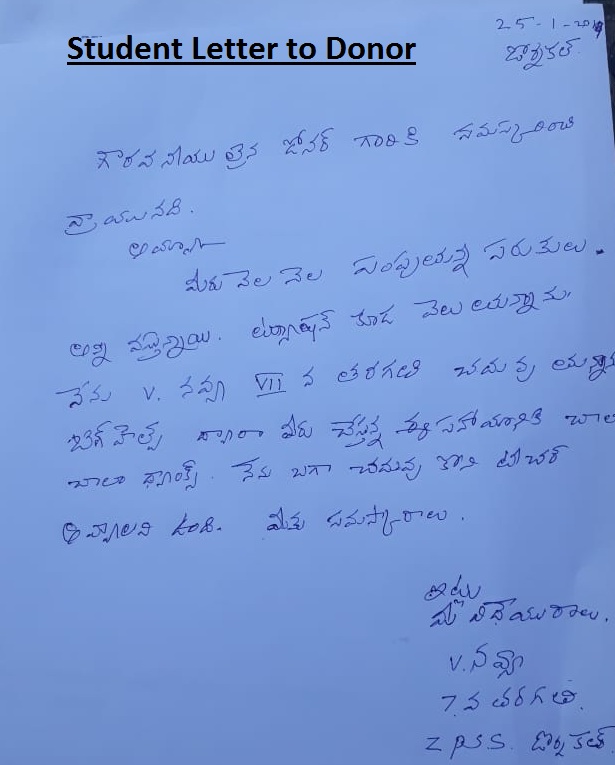 25-1-2019
Student Letter to Donor
డోర్నకల్
గౌరవనీయులైన డోనర్ గారికి నమస్కరించి
వ్రాయునది.
ఆయ్యా
మీరు నెల నెల పంపుతున్న సరుకులు
అన్ని వస్తున్నాయి. ట్యూషన్ కూడ వెలుతున్నాను.
నేను V. నవ్యా VII వ తరగతి చదువుతున్నాను
బిగ్ హెల్ప్ ద్వారా మీరు చేస్తున్న ఈ సహాయానికి చాల
చాలా థ్యాంక్స్. నేను బగా చదువు కొని టీచర్
అవ్వాలని ఉంది. మీకు నమస్కారాలు.
ఇట్లు
మీ విధేయురాలు.
V. నవ్యా
7. వ తరగతి.
Z P.S.S. డోర్నకల్